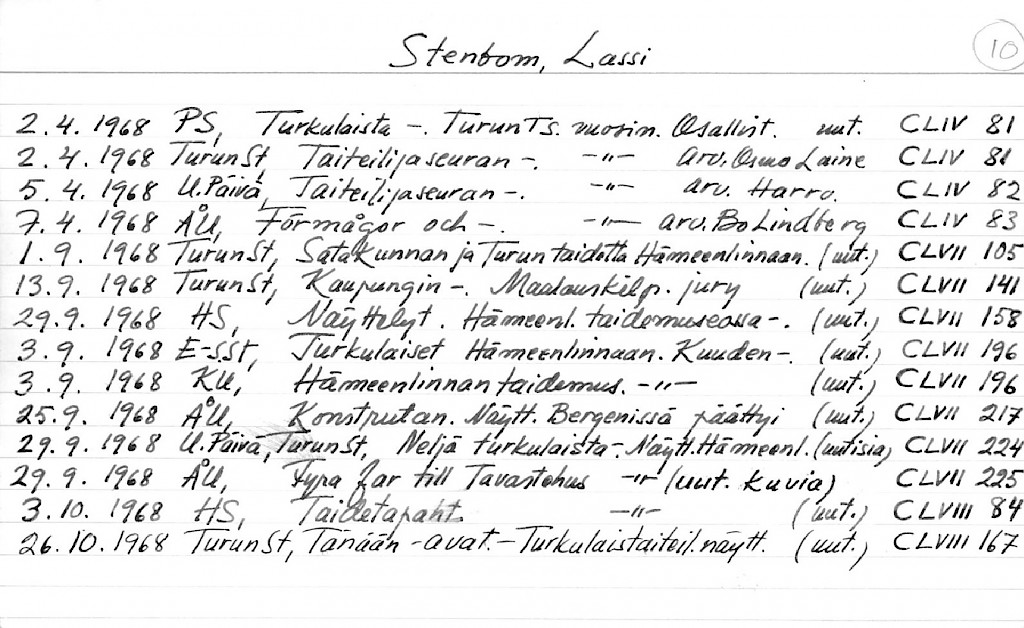 Stenbom, Lassi
10
2.4. 1968 PS, Turkulaista -. Turun Ts. vuosin. Osallist. uut. CLIV 81
2.4. 1968 TurunSt, Taiteilijaseuran -. -"- arv. Osmo Laine CLIV 81
5.4. 1968 U.Päivä, Taiteilijaseuran -. -"- arv. Harro. CLIV 82
7.4. 1968 ÅU, Förmågor och -. -"- arv. Bo Lindberg CLIV 83
1.9. 1968 TurunSt, Satakunnan ja Turun taidetta Hämeenlinnaan. (uut.) CLVII 105
13.9. 1968 TurunSt, Kaupungin -. Maalauskilp. jury (uut.) CLVII 141
29.9. 1968 HS, Näyttelyt. Hämeenl. taidemuseossa -. (uut.) CLVII 158
3.9. 1968 E-SSt, Turkulaiset Hämeenlinnaan. Kuuden -. (uut.) CLVII 196
3.9. 1968 KU, Hämeenlinnan taidemus. -"- (uut.) CLVII 196
25.9. 1968 ÅU, Konstputan. Näytt. Bergenissä päättyi (uut.) CLVII 217
29.9. 1968 U.Päivä, TurunSt, Neljä turkulaista -. Näytt. Hämeenl. (uutisia) CLVII 224
29.9. 1968 ÅU, Fyra far till Tavastehus -"- (uut. kuvia) CLVII 225
3.10. 1968 HS, Taidetapaht. -"- (uut.) CLVIII 84
26.10.1968 TurunSt, Tänään -avat.- Turkulaistaiteil. näytt. (uut.) CLVIII 167